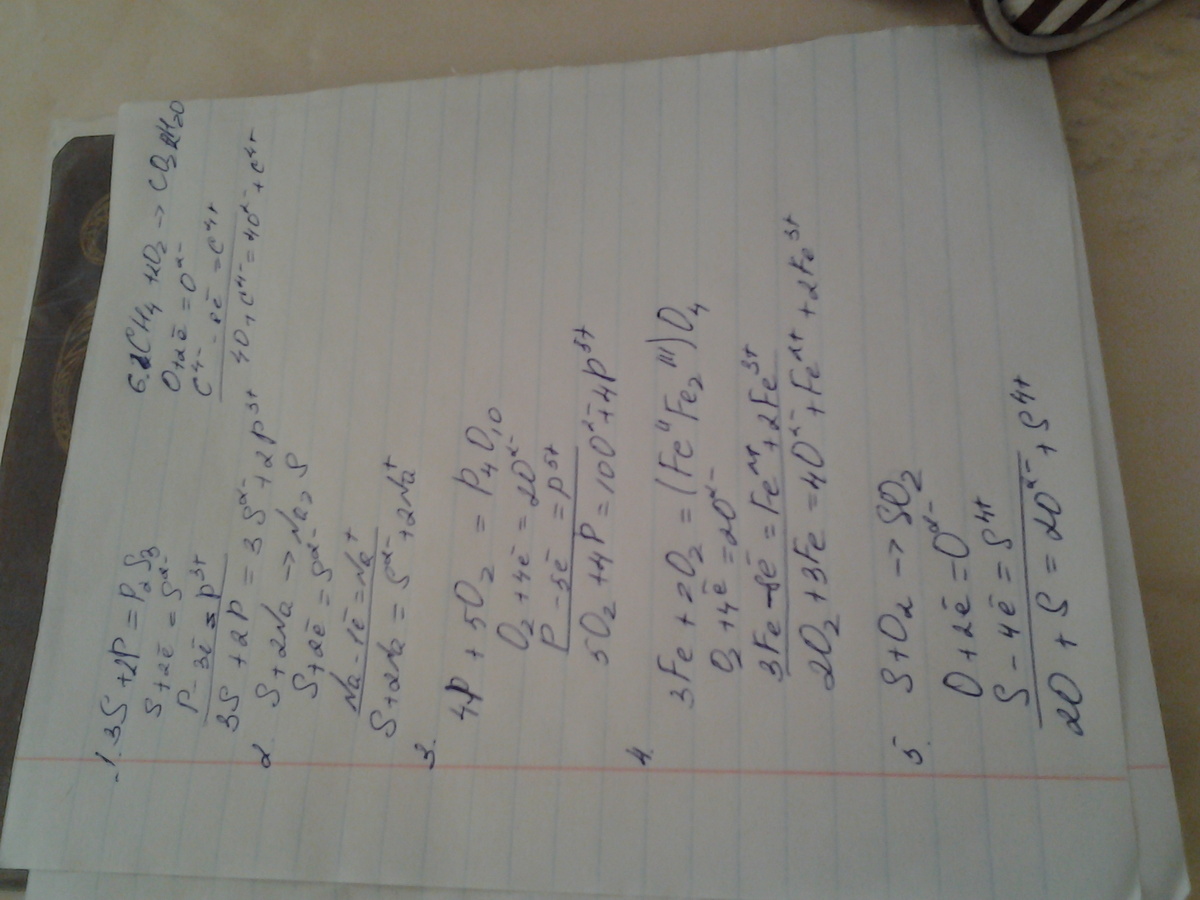 1. 3S + 2P = P₂S₃
S + 2ē = S²⁻
P - 3ē = P³⁺
3S + 2P = 3S²⁻ + 2P³⁺
2. S + 2Na → Na₂S
S + 2ē = S²⁻
Na - 1ē = Na⁺
S + 2Na = S²⁻ + 2Na⁺
3.
4P + 5O₂ = P₄O₁₀
O₂ + 4ē = 2O²⁻
P - 5ē = P⁵⁺
5O₂ + 4P = 10O²⁻ + 4P⁵⁺
4.
3Fe + 2O₂ = (Feᴵᴵ Fe₂ᴵᴵᴵ)O₄
O₂ + 4ē = 2O²⁻
3Fe - 8ē = Fe²⁺ + 2Fe³⁺
2O₂ + 3Fe = 4O²⁻ + Fe²⁺ + 2Fe³⁺
5. S + O₂ → SO₂
O + 2ē = O²⁻
S - 4ē = S⁴⁺
2O + S = 2O²⁻ + S⁴⁺
6. CH₄ + 2O₂ → CO₂ 2H₂O
O + 2ē = O²⁻
C⁴⁻ - 8ē = C⁴⁺
4O + C⁴⁻ = 4O²⁻ + C⁴⁺